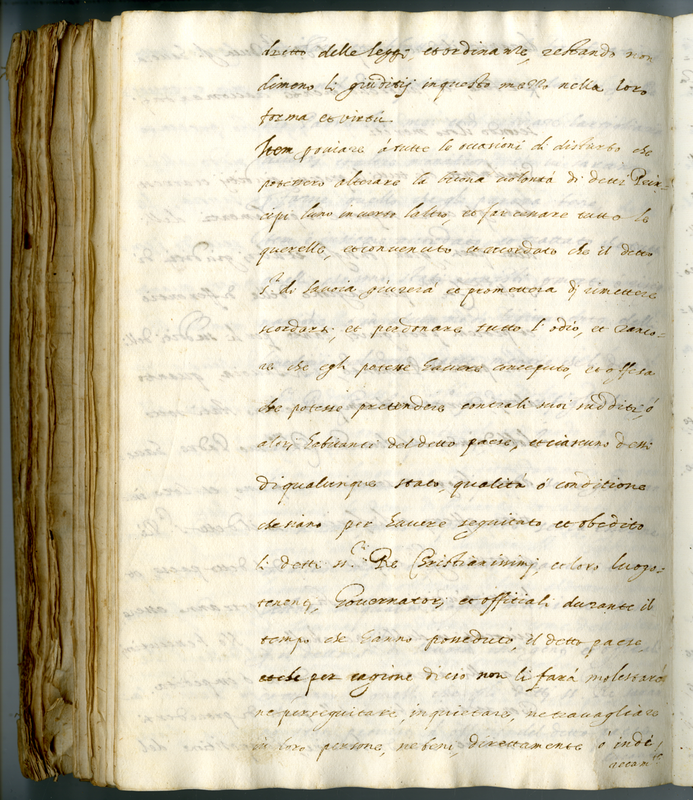 dretto delle leggi, et ordinanze, restando non
dimeno li giuditij in questo mezzo nella loro
forma et virtù.
Item p ouiare à tutte le occasioni di disturbo che
potessero alterare la buona volontà di detti Prin-
cipi luno inuerso laltro, et tutto le
querelle, et conuenuto et accordato che il detto
S.r di Sauoia giurerà et prometterà di rimettere
scordare, et perdonare tutto l'odio, et ranco-
re che egli potesse hauere conceputo, et offesa
che potesse pretendere contra li suoi sudditi, ò
altri habitanti del detto paese, et ciascuno d'essi
di qualunque stato, qualità ò conditione
che siano per hauere seguitato, et obedito
li detti SS.ri Re Cristianissimi, et loro luogo-
tenenti, Gouernatori, et officiali durante il
tempo che hanno posseduto, il detto paese,
et che per cagione di ciò non li farà molestare
ne perseguitare, inquietare, ne trauagliare
in loro persone, ne beni, direttamente ò indi
rettam.te